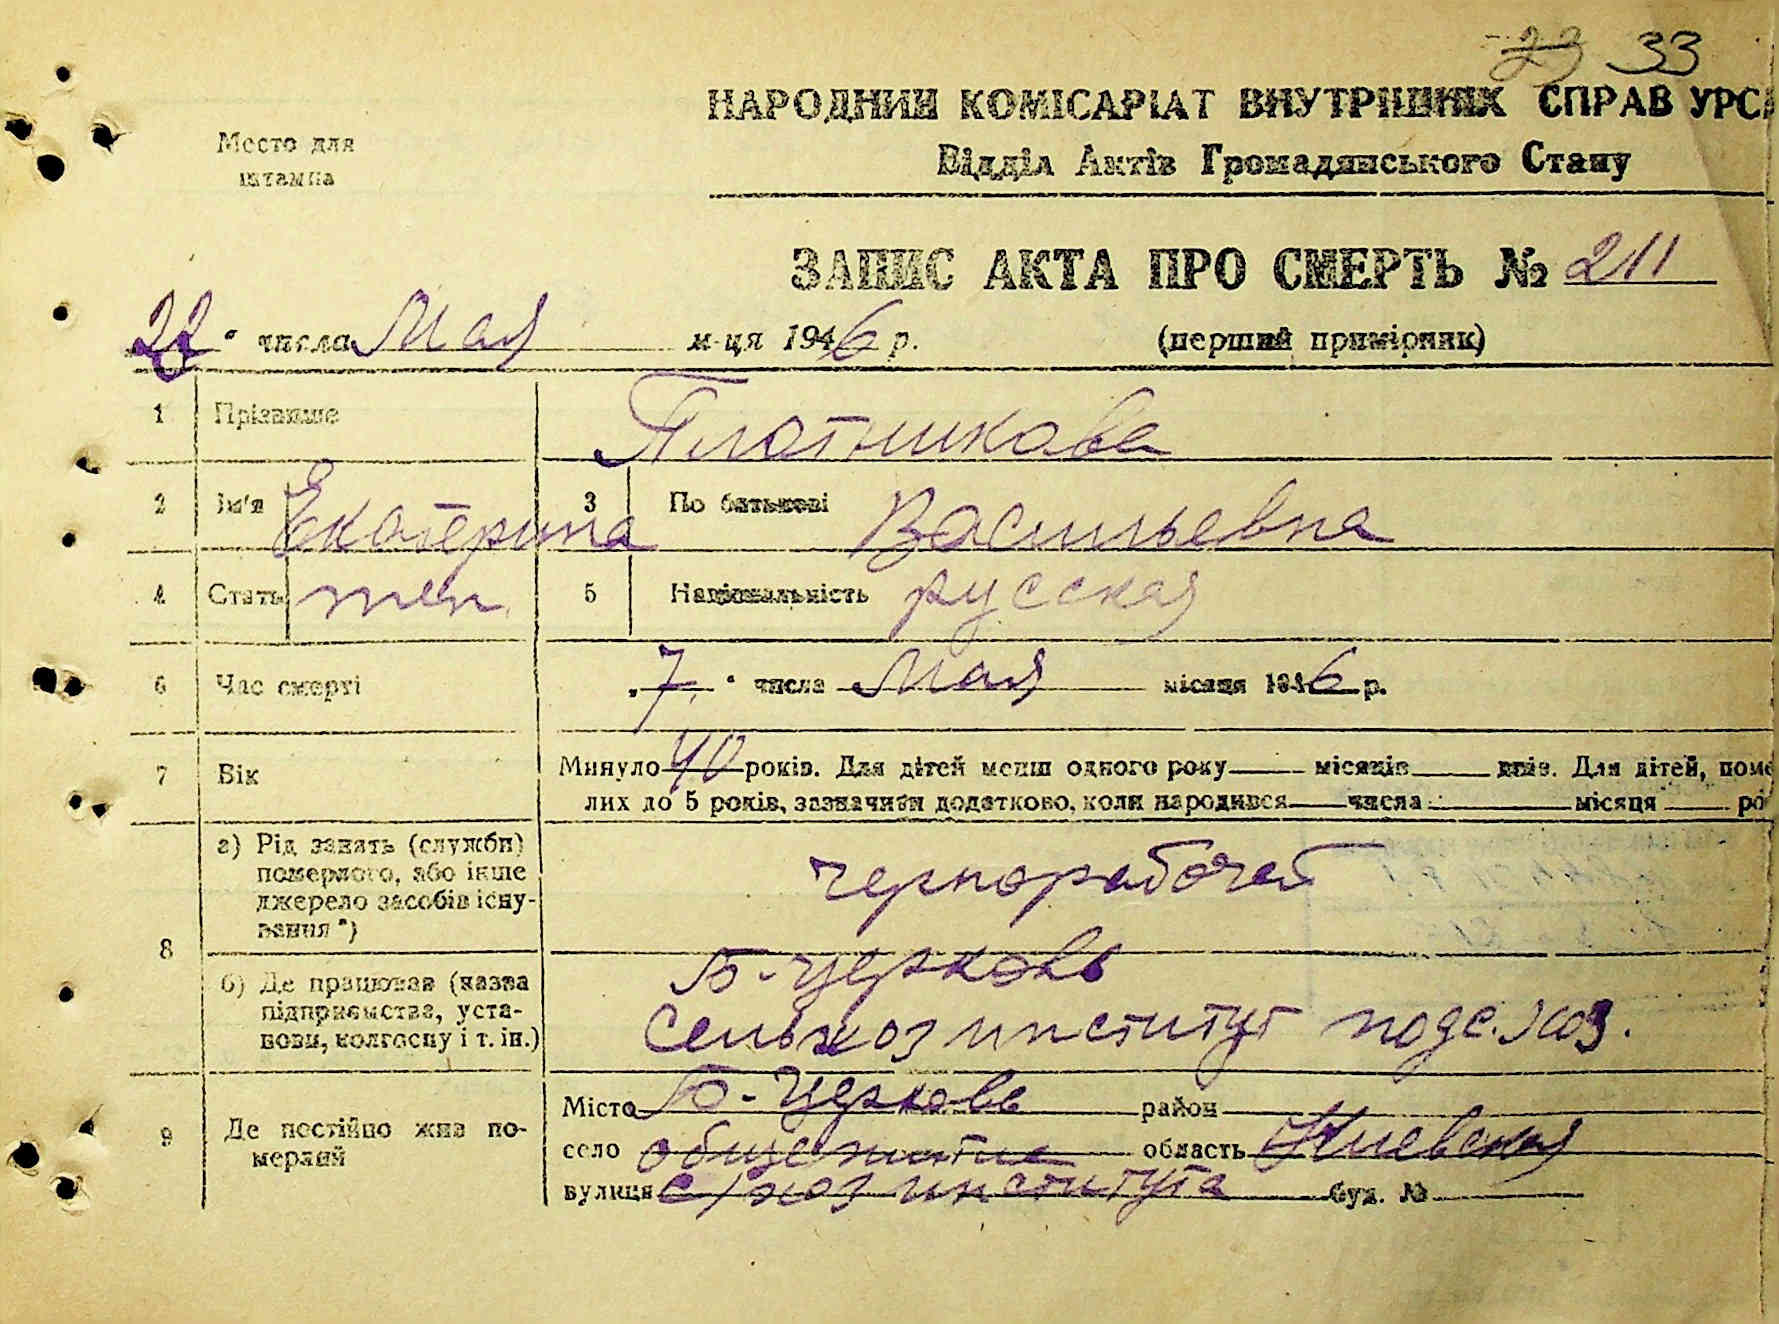 33
НАРОДНИЙ КОМІСАРІАТ ВНУТРІШНІХ СПРАВ УРСР
Место для
штампа
Відділ Актів Громадянського Стану
ЗАПИС АКТА ПРО СМЕРТЬ № 211
22 " числа Мая м-ця 1946 р. (перший примірник)
1 Прізвище Плотникова
2 Ім'я Екатерина 3 По батькові Васильевна
4 Стать жен 5 Національність русская
6 Час смерті "7" числа Мая місяця 1946 р.
7 Вік Минуло 40 років. Для дітей менш одного року місяців днів. Для дітей, поме
лих до 5 років, зазначити додатково, коли народився числа місяця ро
8 а) Рід занять (служби)
померлого, або інше
джерело засобів існу-
вання *)
чернорабочей
б) Де працював (назва
підприємства, уста-
нови, колгоспу і т. ін.)
Б-Церковь
Сельхозинститут подс. хоз.
9 Де постійно жив по-
мерлий
Місто Б-Церковь район
село общежитие область Киевская
вулиця с/хоз института буд. №